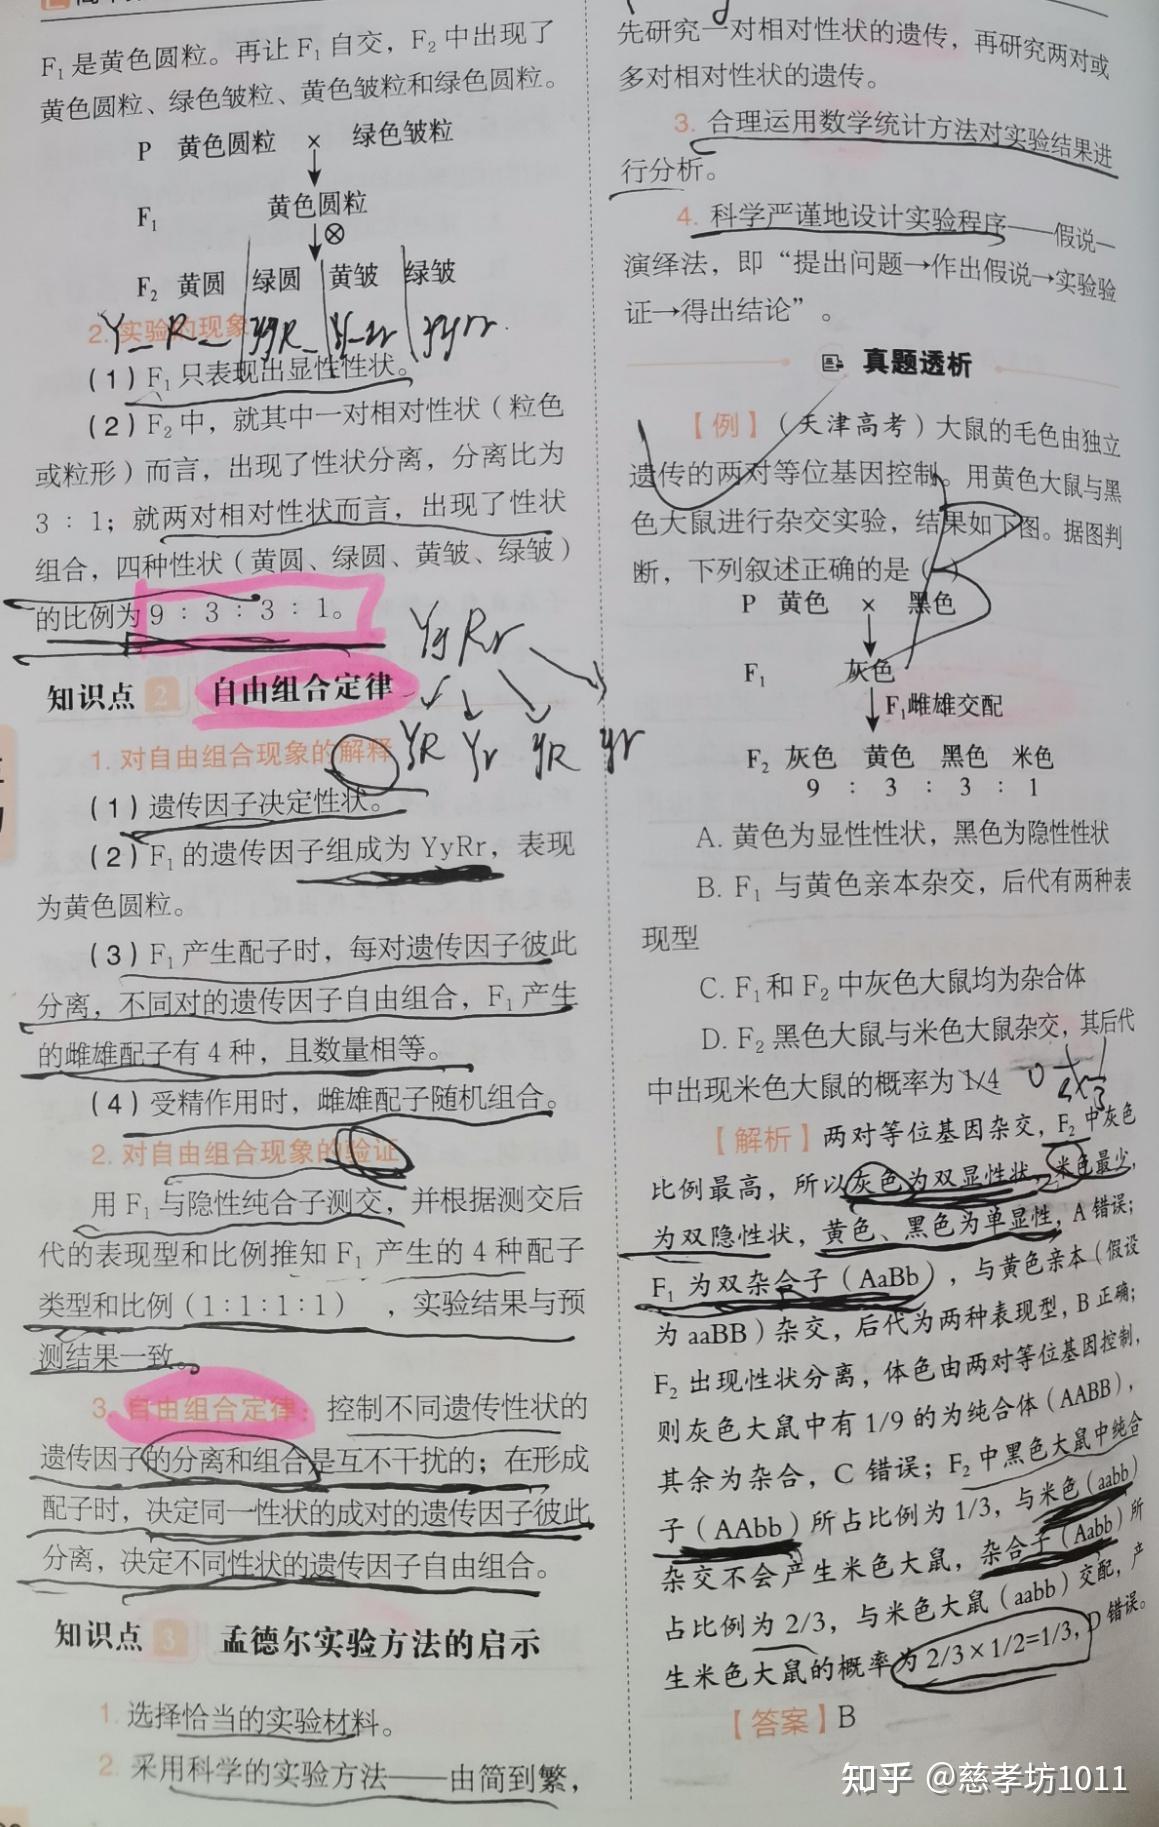 F₁是黄色圆粒。再让F₁自交，F₂中出现了
黄色圆粒、绿色皱粒、黄色皱粒和绿色圆粒。
P 黄色圆粒 × 绿色皱粒
F₁ 黄色圆粒
⊗
F₂ 黄圆 绿圆 黄皱 绿皱
Y_R_ yyR_ Y_rr yyrr
2.实验的现象
（1）F₁只表现出显性性状。
（2）F₂中，就其中一对相对性状（粒色
或粒形）而言，出现了性状分离，分离比为
3：1；就两对相对性状而言，出现了性状
组合，四种性状（黄圆、绿圆、黄皱、绿皱）
的比例为9：3：3：1。
YyRr
YR Yr yR yr
知识点 2 自由组合定律
1.对自由组合现象的解释
（1）遗传因子决定性状。
（2）F₁的遗传因子组成为YyRr，表现
为黄色圆粒。
（3）F₁产生配子时，每对遗传因子彼此
分离，不同对的遗传因子自由组合，F₁产生
的雌雄配子有4种，且数量相等。
（4）受精作用时，雌雄配子随机组合。
2.对自由组合现象的验证
用F₁与隐性纯合子测交，并根据测交后
代的表现型和比例推知F₁产生的4种配子
类型和比例（1:1:1:1），实验结果与预
测结果一致。
3.自由组合定律：控制不同遗传性状的
遗传因子的分离和组合是互不干扰的；在形成
配子时，决定同一性状的成对的遗传因子彼此
分离，决定不同性状的遗传因子自由组合。
知识点 3 孟德尔实验方法的启示
1.选择恰当的实验材料。
2.采用科学的实验方法——由简到繁，
先研究一对相对性状的遗传，再研究两对或
多对相对性状的遗传。
3.合理运用数学统计方法对实验结果进
行分析。
4.科学严谨地设计实验程序——假说—
演绎法，即“提出问题→作出假说→实验验
证→得出结论”。
真题透析
【例】（天津高考）大鼠的毛色由独立
遗传的两对等位基因控制。用黄色大鼠与黑
色大鼠进行杂交实验，结果如下图。据图判
断，下列叙述正确的是（ ）
B
P 黄色 × 黑色
F₁ 灰色
F₁雌雄交配
F₂ 灰色 黄色 黑色 米色
9 : 3 : 3 : 1
A.黄色为显性性状，黑色为隐性性状
B.F₁与黄色亲本杂交，后代有两种表
现型
C.F₁和F₂中灰色大鼠均为杂合体
D.F₂黑色大鼠与米色大鼠杂交，其后代
中出现米色大鼠的概率为1/4
【解析】两对等位基因杂交，F₂中灰色
比例最高，所以灰色为双显性状，米色最少，
为双隐性状，黄色、黑色为单显性，A错误；
F₁为双杂合子（AaBb），与黄色亲本（假设
为aaBB）杂交，后代为两种表现型，B正确；
F₂出现性状分离，体色由两对等位基因控制，
则灰色大鼠中有1/9的为纯合体（AABB），
其余为杂合，C错误；F₂中黑色大鼠中纯合
子（AAbb）所占比例为1/3，与米色（aabb）
杂交不会产生米色大鼠，杂合子（Aabb）所
占比例为2/3，与米色大鼠（aabb）交配，产
生米色大鼠的概率为2/3×1/2=1/3，D错误。
【答案】B
知乎 @慈孝坊1011